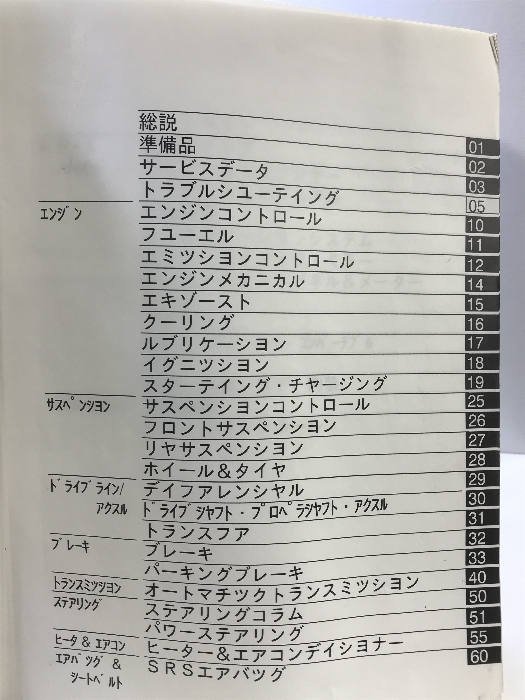 総説 01
準備品 02
サービスデータ 03
トラブルシユーテイング 05
エンジン エンジンコントロール 10
フユーエル 11
エミツシヨンコントロール 12
エンジンメカニカル 14
エキゾースト 15
クーリング 16
ルブリケーシヨン 17
イグニツシヨン 18
スターテイング・チヤージング 19
サスペンシヨン サスペンシヨンコントロール 25
フロントサスペンシヨン 26
リヤサスペンシヨン 27
ホイール&タイヤ 28
ドライブライン/ デイフアレンシヤル 29
アクスル ドライブシヤフト・プロペラシヤフト・アクスル 30
トランスフア 31
ブレーキ ブレーキ 32
パーキングブレーキ 33
トランスミツシヨン オートマチツクトランスミツシヨン 40
ステアリング ステアリングコラム 50
パワーステアリング 51
ヒータ&エアコン ヒーター&エアコンデイシヨナー 55
エアバツグ& SRSエアバツグ 60
シートベルト